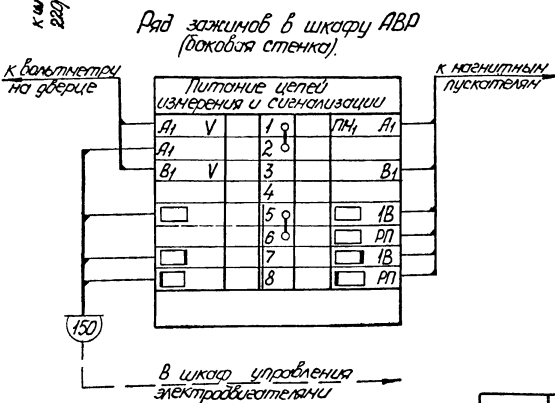 Ряд зажимов в шкафу АВР
(боковая стенка).
к вольтметру
на дверце
к магнитным
пускателям
Питание цепей
измерения и сигнализации
А1 V 1 ПМ1 А1
А1 2
В1 V 3 В1
4
5 1В
6 РП
7 1В
8 РП
150
В шкаф управления
электродвигателями